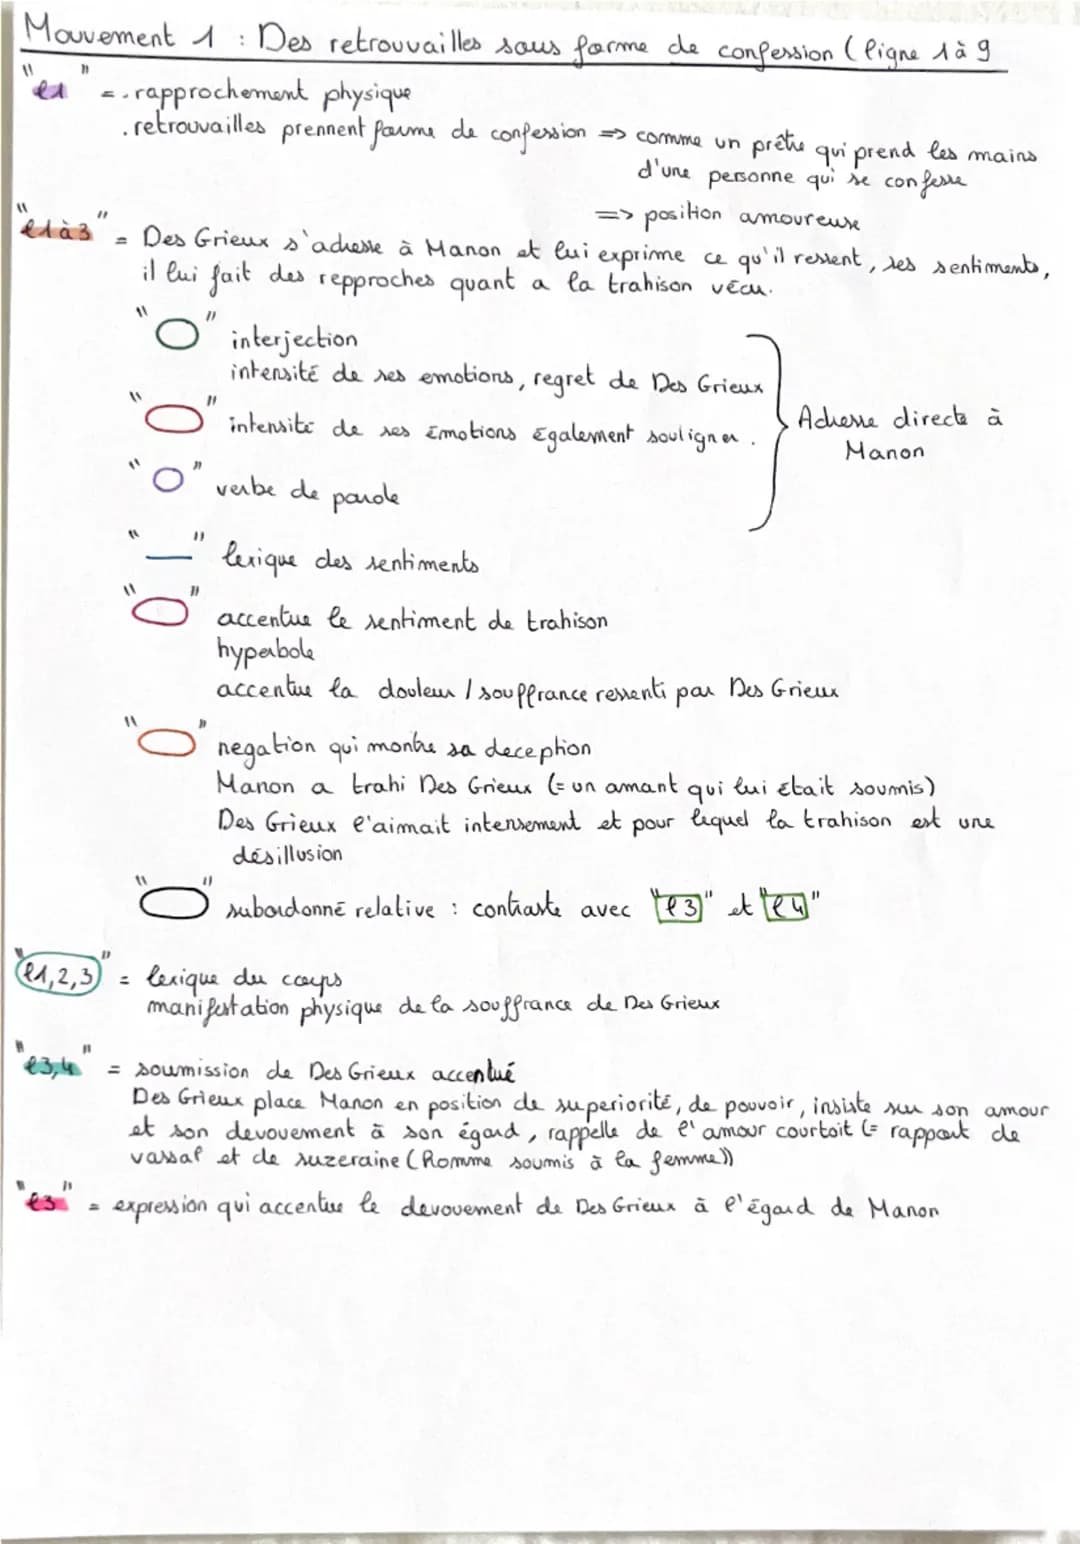 Mouvement 1 : Des retrouvailles sous forme de confession (ligne 1 à 9
"l1" = . rapprochement physique
. retrouvailles prennent forme de confession => comme un prêtre qui prend les mains
d'une personne qui se confesse
=> position amoureuse
"l1à3" = Des Grieux s'adresse à Manon et lui exprime ce qu'il ressent, ses sentiments,
il lui fait des repproches quant a la trahison vécu.
" " interjection
intensité de ses emotions, regret de Des Grieux
" " intensité de ses émotions également souligner.
Adresse directe à
Manon
" " verbe de parole
" " lexique des sentiments
" " accentue le sentiment de trahison
hyperbole
accentue la douleur / souffrance ressenti par Des Grieux
" " negation qui montre sa deception
Manon a trahi Des Grieux (= un amant qui lui était soumis)
Des Grieux l'aimait intensement et pour lequel la trahison est une
désillusion
" " subordonné relative : contraste avec "l3" et "l4"
"l1,2,3" = lexique du corps
manifestation physique de la souffrance de Des Grieux
"l3,4" = soumission de Des Grieux accentué
Des Grieux place Manon en position de superiorité, de pouvoir, insiste sur son amour
et son devouement à son égard, rappelle de l'amour courtoit (= rapport de
vassal et de suzeraine (Homme soumis à la femme))
"l3" = expression qui accentue le devouement de Des Grieux à l'égard de Manon